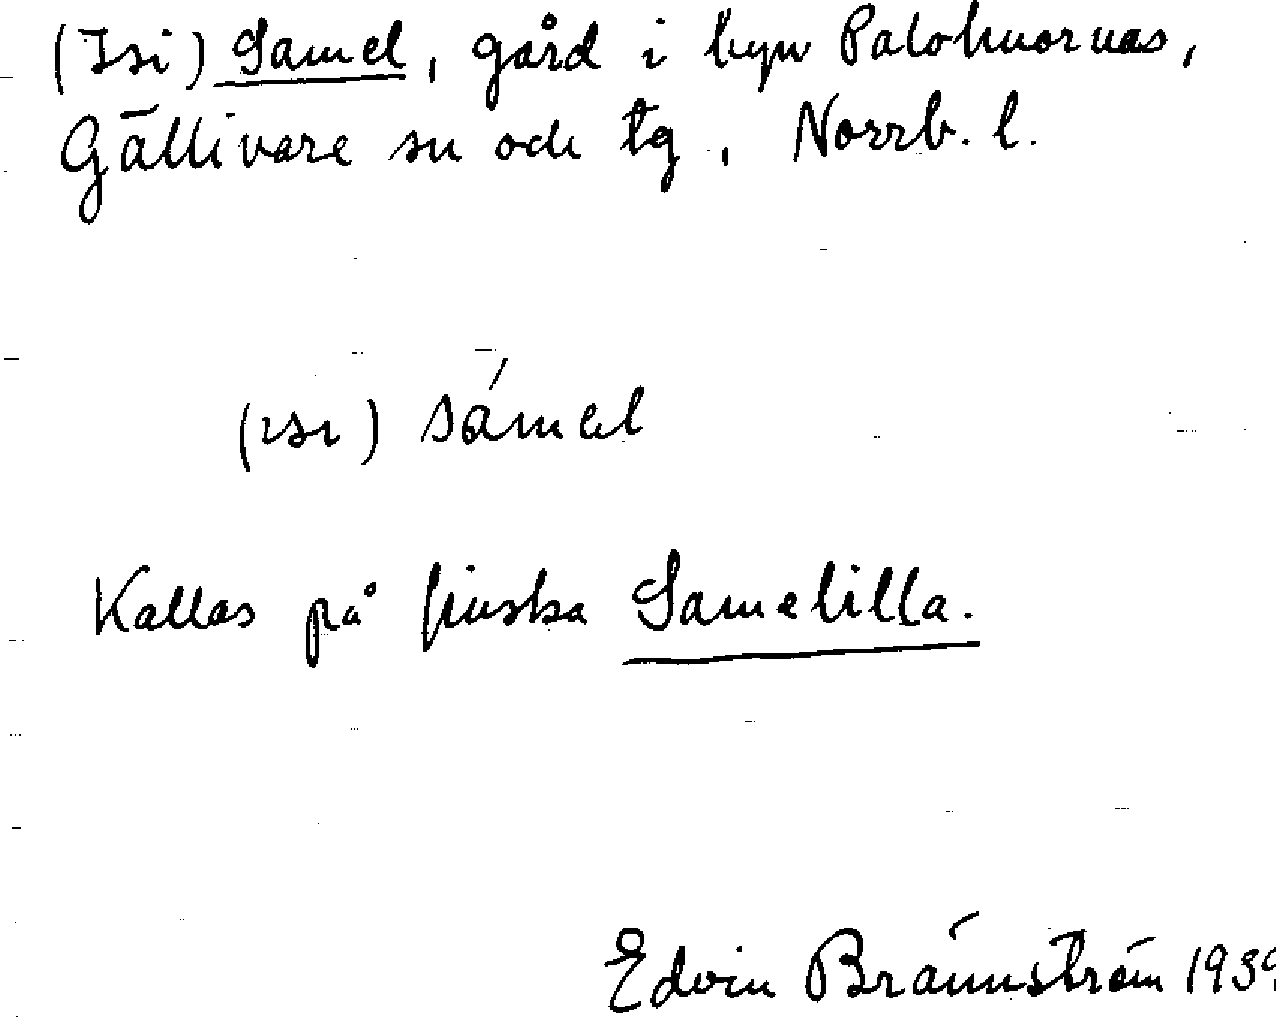 (Isi) Samel, gård i byn Palohuornas,
Gällivare sn och tg, Norrb. l.
(ısı) sámel
Kallas på finska Samelilla.
Edvin Brännström 1939